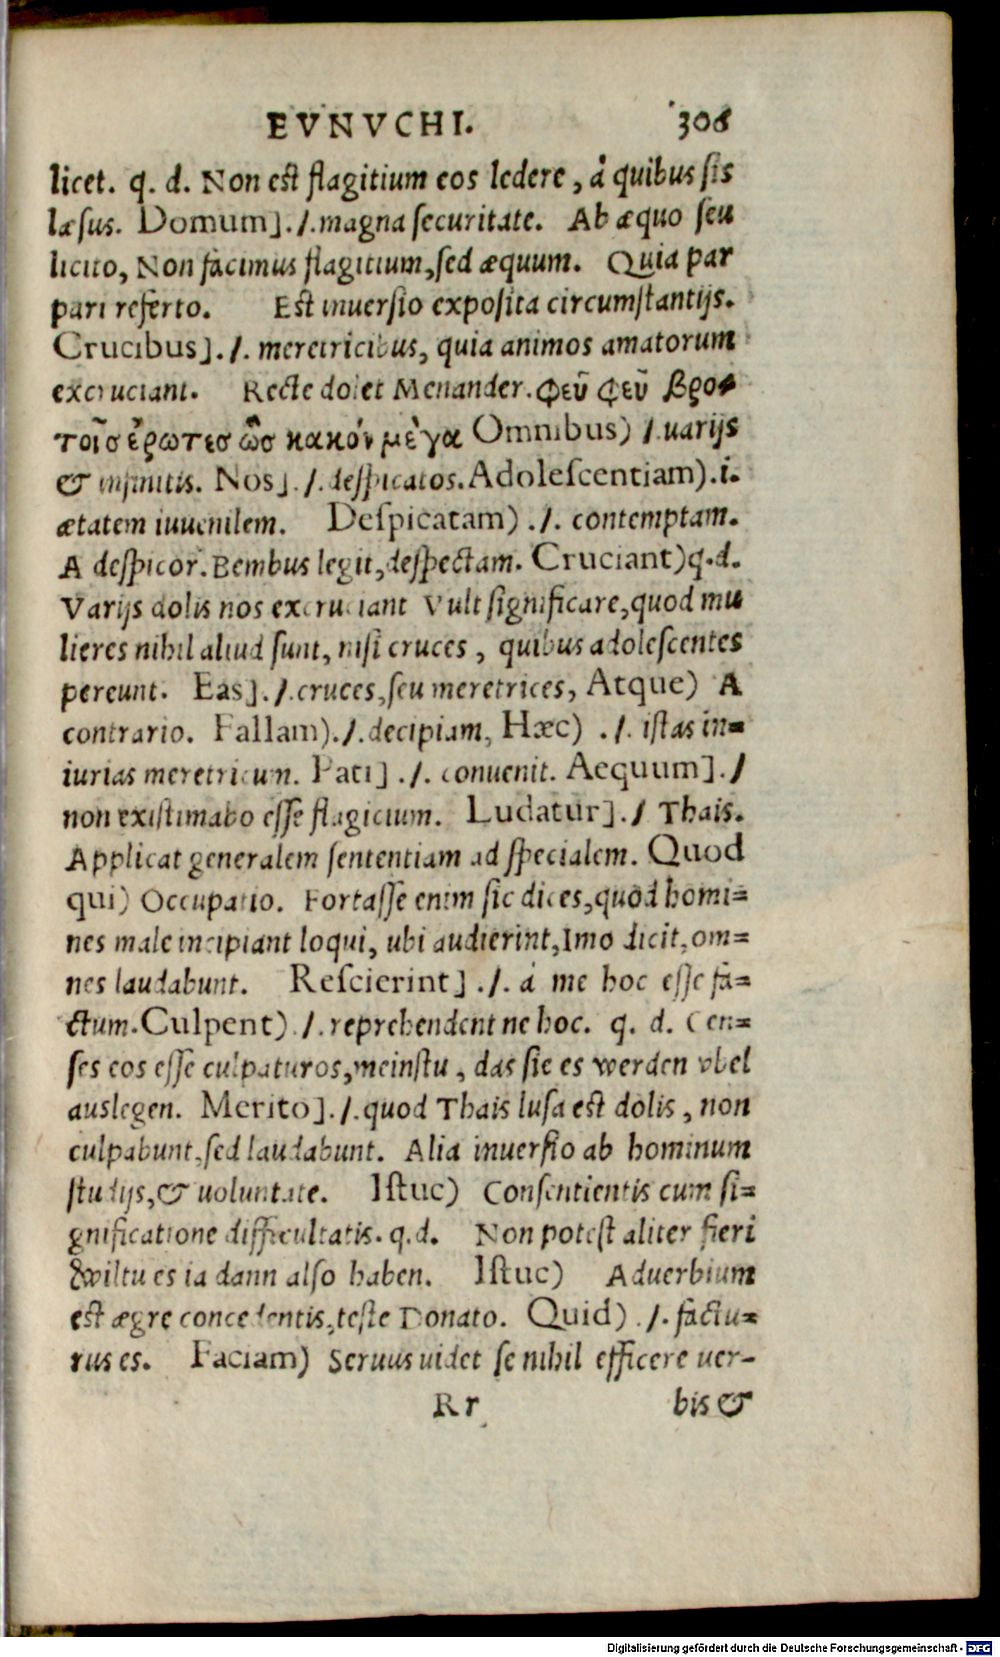 EVNVCHI. 306
licet. q. d. Non est flagitium eos ledere, à quibus sis
læsus. Domum]./.magna securitate. Ab æquo seu
licito, Non facimus flagitium, sed æquum. Quia par
pari referto. Est inuersio exposita circumstantijs.
Crucibus]./. meretricibus, quia animos amatorum
excruciant. Recte dolet Menander. φεῦ φεῦ βρο-
τοῖσ ἔρωτεσ ὡσ κακόν μέγα Omnibus) /.uarijs
& infinitis. Nos]./.despicatos. Adolescentiam).i.
ætatem iuuenilem. Despicatam)./. contemptam.
A despicor. Bembus legit, despectam. Cruciant)q.d.
Varijs dolis nos excruciant Vult significare, quod mu
lieres nihil aliud sunt, nisi cruces, quibus adolescentes
pereunt. Eas]./.cruces, seu meretrices, Atque) A
contrario. Fallam)./.decipiam, Hæc) ./. istas in=
iurias meretricum. Pati] ./. conuenit. Aequum]./
non existimabo esse flagicium. Ludatur]./ Thais.
Applicat generalem sententiam ad specialem. Quod
qui) Occupatio. Fortasse enim sic dices, quòd homi=
nes male incipiant loqui, ubi audierint, Imo dicit, om=
nes laudabunt. Rescierint] ./. à me hoc esse fa=
ctum. Culpent)./.reprehendent ne hoc. q. d. Cen=
ses eos esse culpaturos, meinstu, das sie es werden vbel
auslegen. Merito]./.quod Thais lusa est dolis, non
culpabunt, sed laudabunt. Alia inuersio ab hominum
studijs, & uoluntate. Istuc) Consentientis cum si=
gnificatione difficultatis. q.d. Non potest aliter fieri
wiltu es ia dann also haben. Istuc) Aduerbium
est ægre concedentis, teste Donato. Quid) ./. factu=
rus es. Faciam) Seruus uidet se nihil efficere uer-
Rr bis &
Digitalisierung gefördert durch die Deutsche Forschungsgemeinschaft - DFG